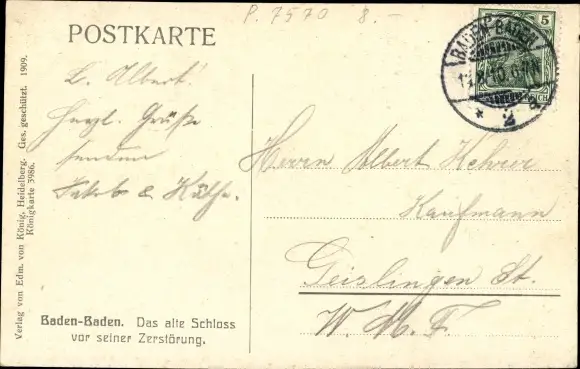 P. 7570 8.-
POSTKARTE
5
BADEN-BADEN
* 2 a
L. Albert!
Herzl. Grüße
senden
Jakob &
Herrn Albert Kehrer
Kaufmann
Geislingen St.
W.
Baden-Baden. Das alte Schloss
vor seiner Zerstörung.
Verlag von Edm. von König, Heidelberg. Ges. geschützt. 1909.
Königkarte 3986.